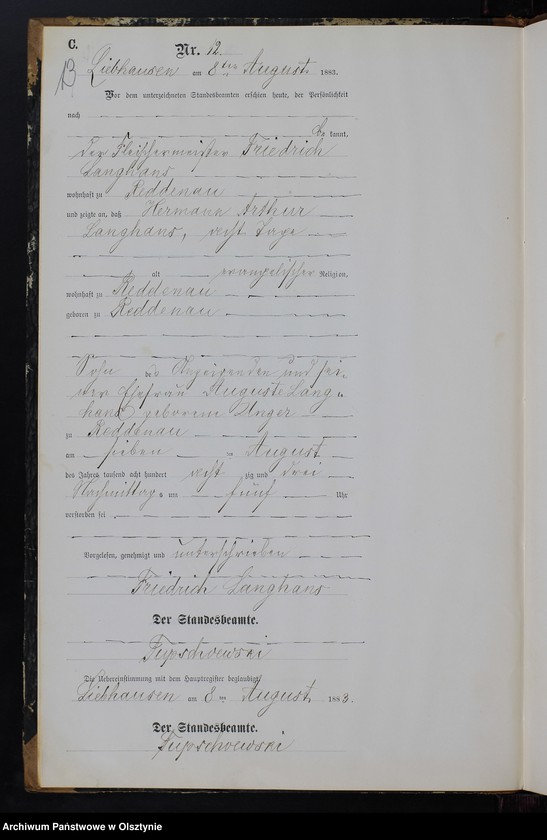 C.
Nr. 12.
13
Liebhausen am 8ten August 1883.
Vor dem unterzeichneten Standesbeamten erschien heute, der Persönlichkeit
nach
kannt,
der Fleischermeister Friedrich
Langhans
wohnhaft zu Reddenau
und zeigte an, daß Hermann Arthur
Langhans, acht Tage
alt evangelischer Religion,
wohnhaft zu Reddenau
geboren zu Reddenau
Sohn des Anzeigenden und sei-
ner Ehefrau Auguste Lang-
hans geborene Unger
zu Reddenau
am sieben ten August
des Jahres tausend acht hundert acht zig und drei
Nachmittags um fünf Uhr
verstorben sei.
Vorgelesen, genehmigt und unterschrieben
Friedrich Langhans
Der Standesbeamte.
Die Uebereinstimmung mit dem Hauptregister beglaubigt
Liebhausen am 8ten August 1883.
Der Standesbeamte.
Archiwum Państwowe w Olsztynie